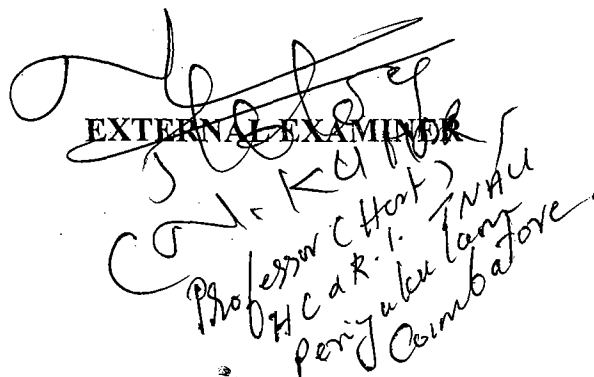 EXTERNAL EXAMINER
(N. KUMAR)
Professor (Hort)
HC & R.I. TNAU
Periyakulam
Coimbatore.